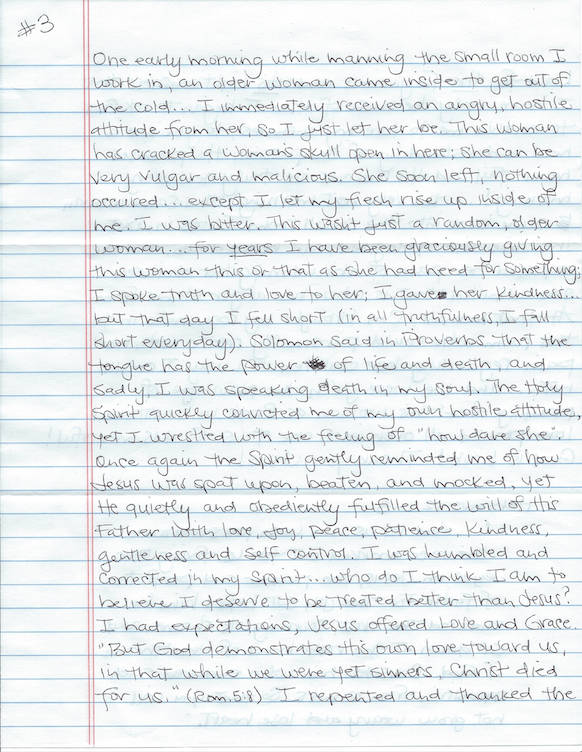 #3
One early morning while manning the small room I
work in, an older woman came inside to get out of
the cold... I immediately received an angry, hostile
attitude from her, so I just let her be. This woman
has cracked a woman's skull open in here; she can be
very vulgar and malicious. She soon left, nothing
occured... except I let my flesh rise up inside of
me. I was bitter. This wasn't just a random, older
woman... for years I have been graciously giving
this woman this or that as she had need for something;
I spoke truth and love to her; I gave her kindness...
but that day I fell short (in all truthfulness, I fall
short everyday). Solomon said in Proverbs that the
tongue has the power of life and death, and
sadly, I was speaking death in my soul. The Holy
Spirit quickly convicted me of my own hostile attitude,
yet I wrestled with the feeling of "how dare she".
Once again the Spirit gently reminded me of how
Jesus was spat upon, beaten, and mocked, yet
He quietly and obediently fulfilled the will of His
Father with love, joy, peace, patience, kindness,
gentleness and self control. I was humbled and
corrected in my spirit... who do I think I am to
believe I deserve to be treated better than Jesus?
I had expectations, Jesus offered Love and Grace.
"But God demonstrates His own love toward us,
in that while we were yet sinners, Christ died
for us." (Rom. 5:8) I repented and thanked the